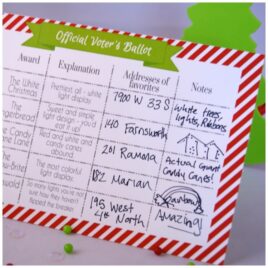 Official Voter's Ballot
Award Explanation Addresses of favorites Notes
The White Christmas
Premiers all - white light display
7900 W 33 S
White trees, lights, Ribbons
The Gingerbread
Sweet and simple light design - you'd eat it up!
140 Farnsworth
The Candy Cane Lane
Red and white and candy canes abound
201 Ramona
Actual Giant Candy Canes!
The most colorful light display
182 Marian
Rainbow
So many lights you're not sure how they haven't flipped the breaker
195 West 4th North
Amazing!